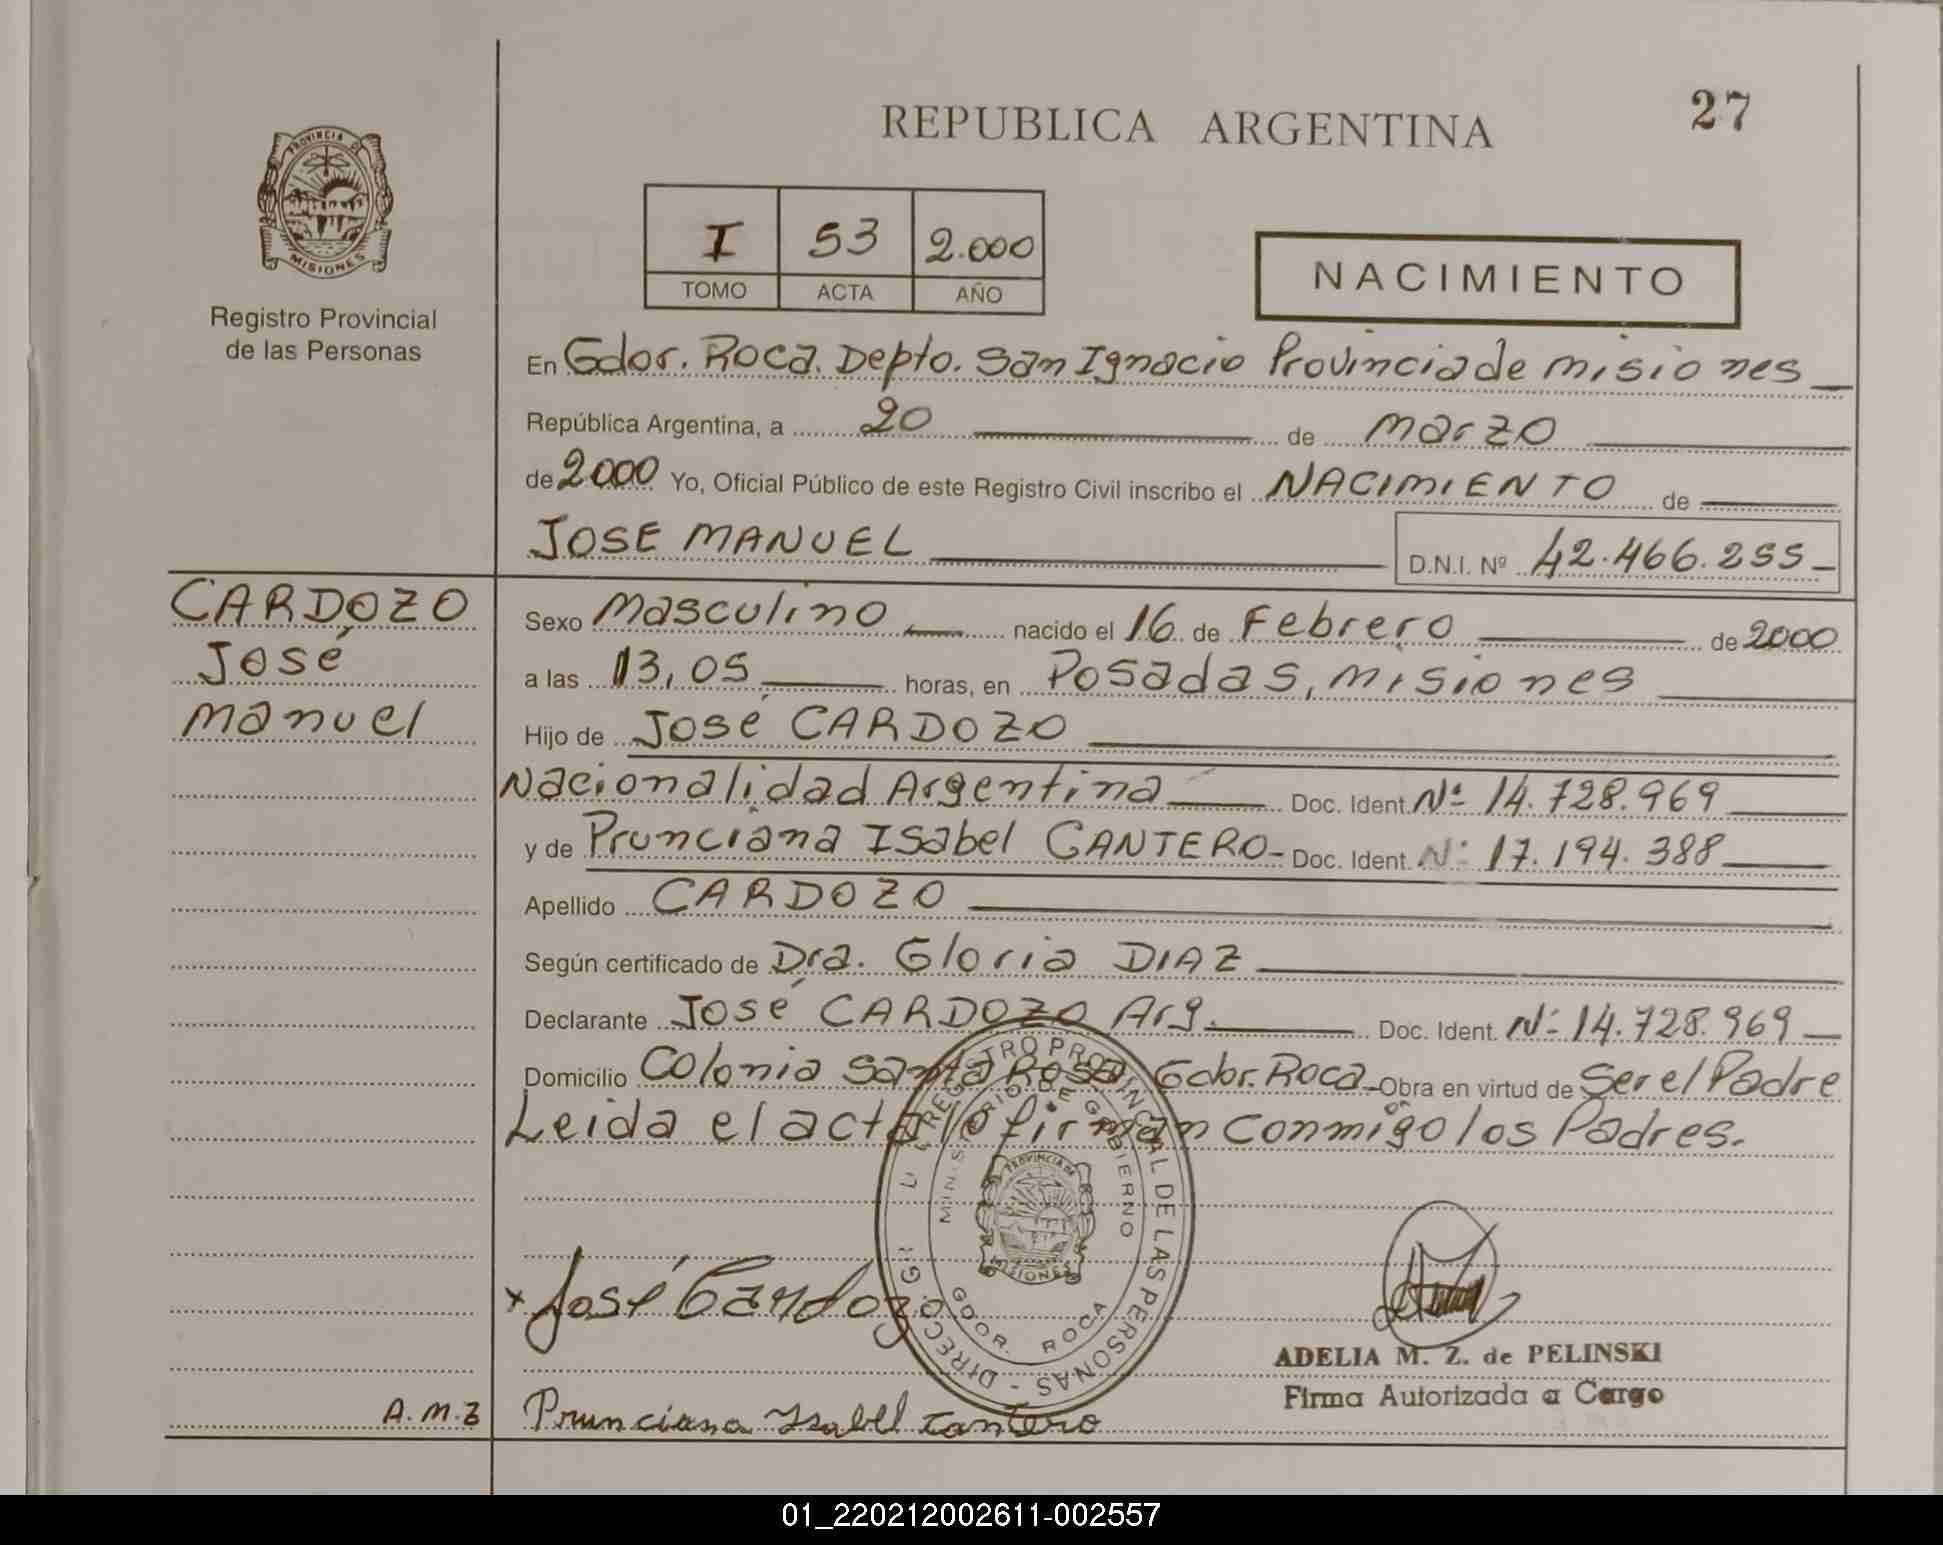 27
REPUBLICA ARGENTINA
PROVINCIA DE
MISIONES
Registro Provincial
de las Personas
I 53 2.000
TOMO ACTA AÑO
NACIMIENTO
En Gdor. Roca. Depto. San Ignacio Provincia de misiones
República Argentina, a 20 de marzo
de 2000 Yo, Oficial Público de este Registro Civil inscribo el NACIMIENTO de
JOSE MANUEL D.N.I. Nº 42.466.255
CARDOZO
José
Manuel
Sexo Masculino nacido el 16 de Febrero de 2000
a las 13,05 horas, en Posadas, misiones
Hijo de José CARDOZO
Nacionalidad Argentina Doc. Ident. Nº 14.728.969
y de Prunciana Isabel CANTERO- Doc. Ident. Nº 17.194.388
Apellido CARDOZO
Según certificado de Dra. Gloria DIAZ
Declarante José CARDOZO Arg. Doc. Ident. Nº 14.728.969
Domicilio Colonia Santa Rosa Gdor. Roca- Obra en virtud de Ser el Padre
Leida el acta lo firman conmigo los Padres.
REGISTRO PROVINCIAL DE LAS PERSONAS
MINISTERIO DE GOBIERNO
PROVINCIA DE
MISIONES
GDOR. ROCA
x José Cardozo
ADELIA M. Z. de PELINSKI
Firma Autorizada a Cargo
A.M.Z
Prunciana Isabel Cantero
01_220212002611-002557